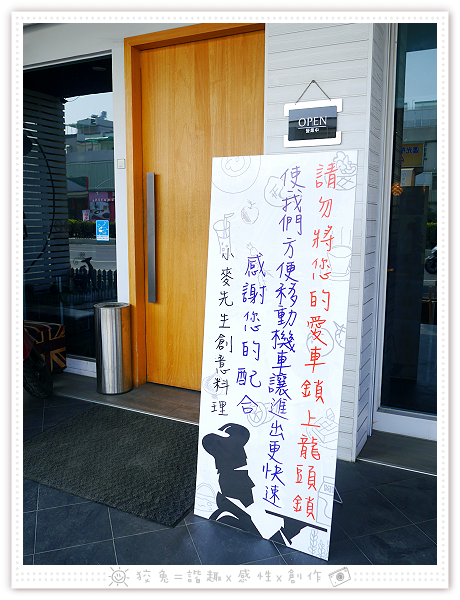 OPEN
營業中
請勿將您的愛車鎖上龍頭鎖
使我們方便移動機車讓進出更快速
感謝您的配合
小麥先生創意料理
狡兔=諧趣x感性x創作